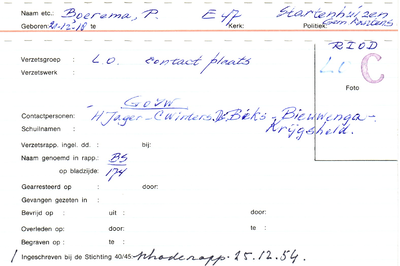 Naam etc.: Boerema, P. Startenhuizen
Geboren: 20-12-'18 te Kerk: Politiek:
RIOD
Verzetsgroep : L.O. contact plaats L.O. C
Verzetswerk :
Foto
Gouw
Contactpersonen: H Jager - C Winters.
Schuilnaam : Krijgsheld.
Verzetsrapp. ingel. dd. : bij:
Naam genoemd in rapp.: BS
op bladzijde: 174
Gearresteerd op : door:
Gevangen gezeten in :
Bevrijd op : uit : door:
Overleden op: door: te :
Begraven op : te :
Ingeschreven bij de Stichting 40/45: 25.12.54.